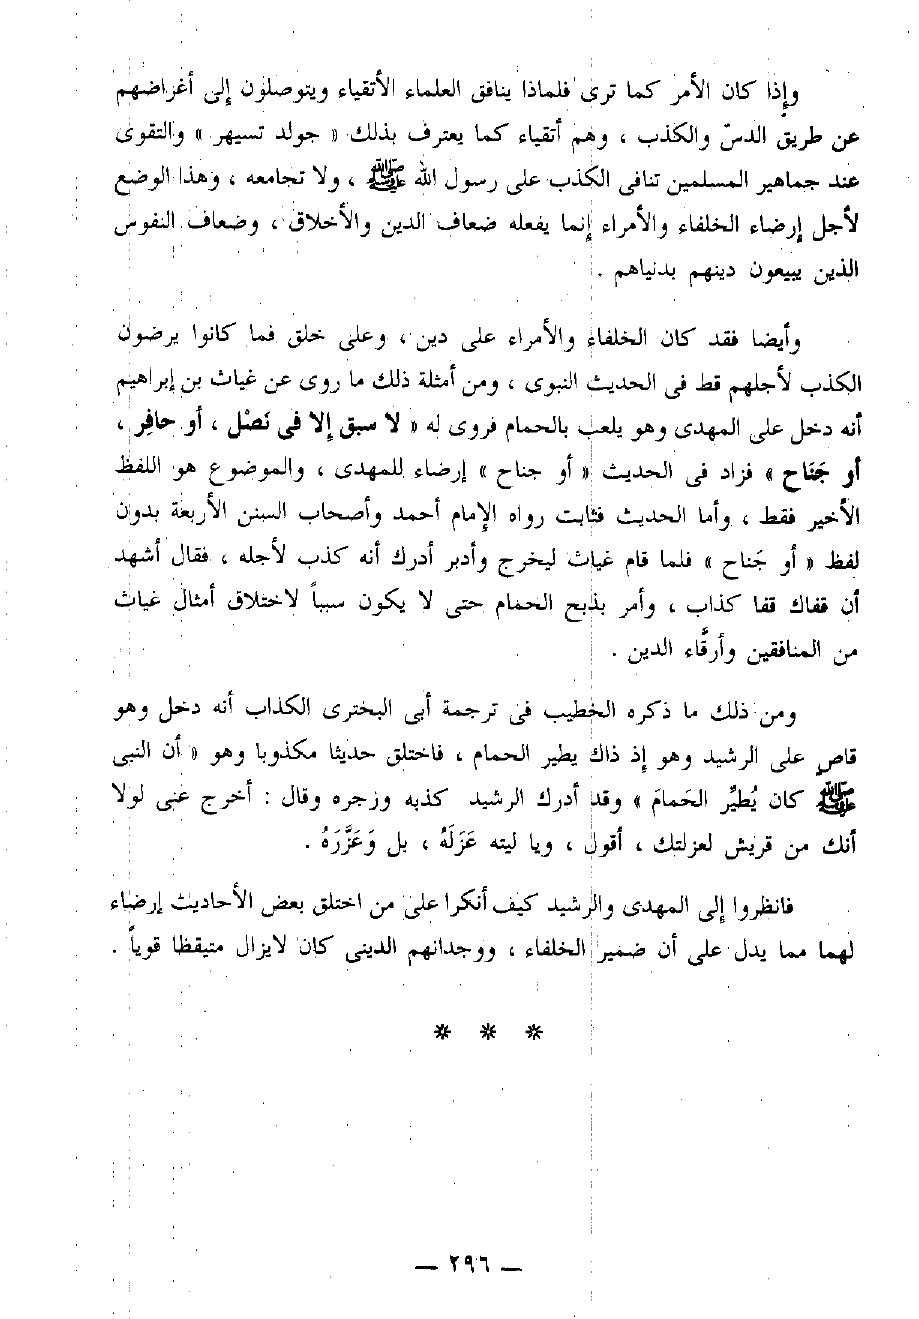 وإذا كان الأمر كما ترى فلماذا ينافق العلماء الأتقياء ويتوصلون إلى أغراضهم
عن طريق الدسّ والكذب ، وهم أتقياء كما يعترف بذلك « جولد تسيهر » والتقوى
عند جماهير المسلمين تنافى الكذب على رسول الله ﷺ ، ولا تجامعه ، وهذا الوضع
لأجل إرضاء الخلفاء والأمراء إنما يفعله ضعاف الدين والأخلاق ، وضعاف النفوس
الذين يبيعون دينهم بدنياهم .
وأيضا فقد كان الخلفاء والأمراء على دين ، وعلى خلق فما كانوا يرضون
الكذب لأجلهم قط فى الحديث النبوى ، ومن أمثلة ذلك ما روى عن غياث بن إبراهيم
أنه دخل على المهدى وهو يلعب بالحمام فروى له « لا سبق إلا فى نَصْل ، أو حافِر ،
أو جَنَاح » فزاد فى الحديث « أو جناح » إرضاء للمهدى ، والموضوع هو اللفظ
الأخير فقط ، وأما الحديث فثابت رواه الإمام أحمد وأصحاب السنن الأربعة بدون
لفظ « أو جَناح » فلما قام غياث ليخرج وأدبر أدرك أنه كذب لأجله ، فقال أشهد
أن قفاك قفا كذاب ، وأمر بذبح الحمام حتى لا يكون سبباً لاختلاق أمثال غياث
من المنافقين وأرقَّاء الدين .
ومن ذلك ما ذكره الخطيب فى ترجمة أبى البخترى الكذاب أنه دخل وهو
قاصٍ على الرشيد وهو إذ ذاك يطير الحمام ، فاختلق حديثا مكذوبا وهو « أن النبى
ﷺ كان يُطيِّر الحَمامَ » وقد أدرك الرشيد كذبه وزجره وقال : أخرج عنى لولا
أنك من قريش لعزلتك ، أقول ، ويا ليته عَزَلَهُ ، بل وَعَزَّرَهُ .
فانظروا إلى المهدى والرشيد كيف أنكرا على من اختلق بعض الأحاديث إرضاء
لهما مما يدل على أن ضمير الخلفاء ، ووجدانهم الدينى كان لايزال متيقظا قوياً .
* * *
— ٢٩٦ —